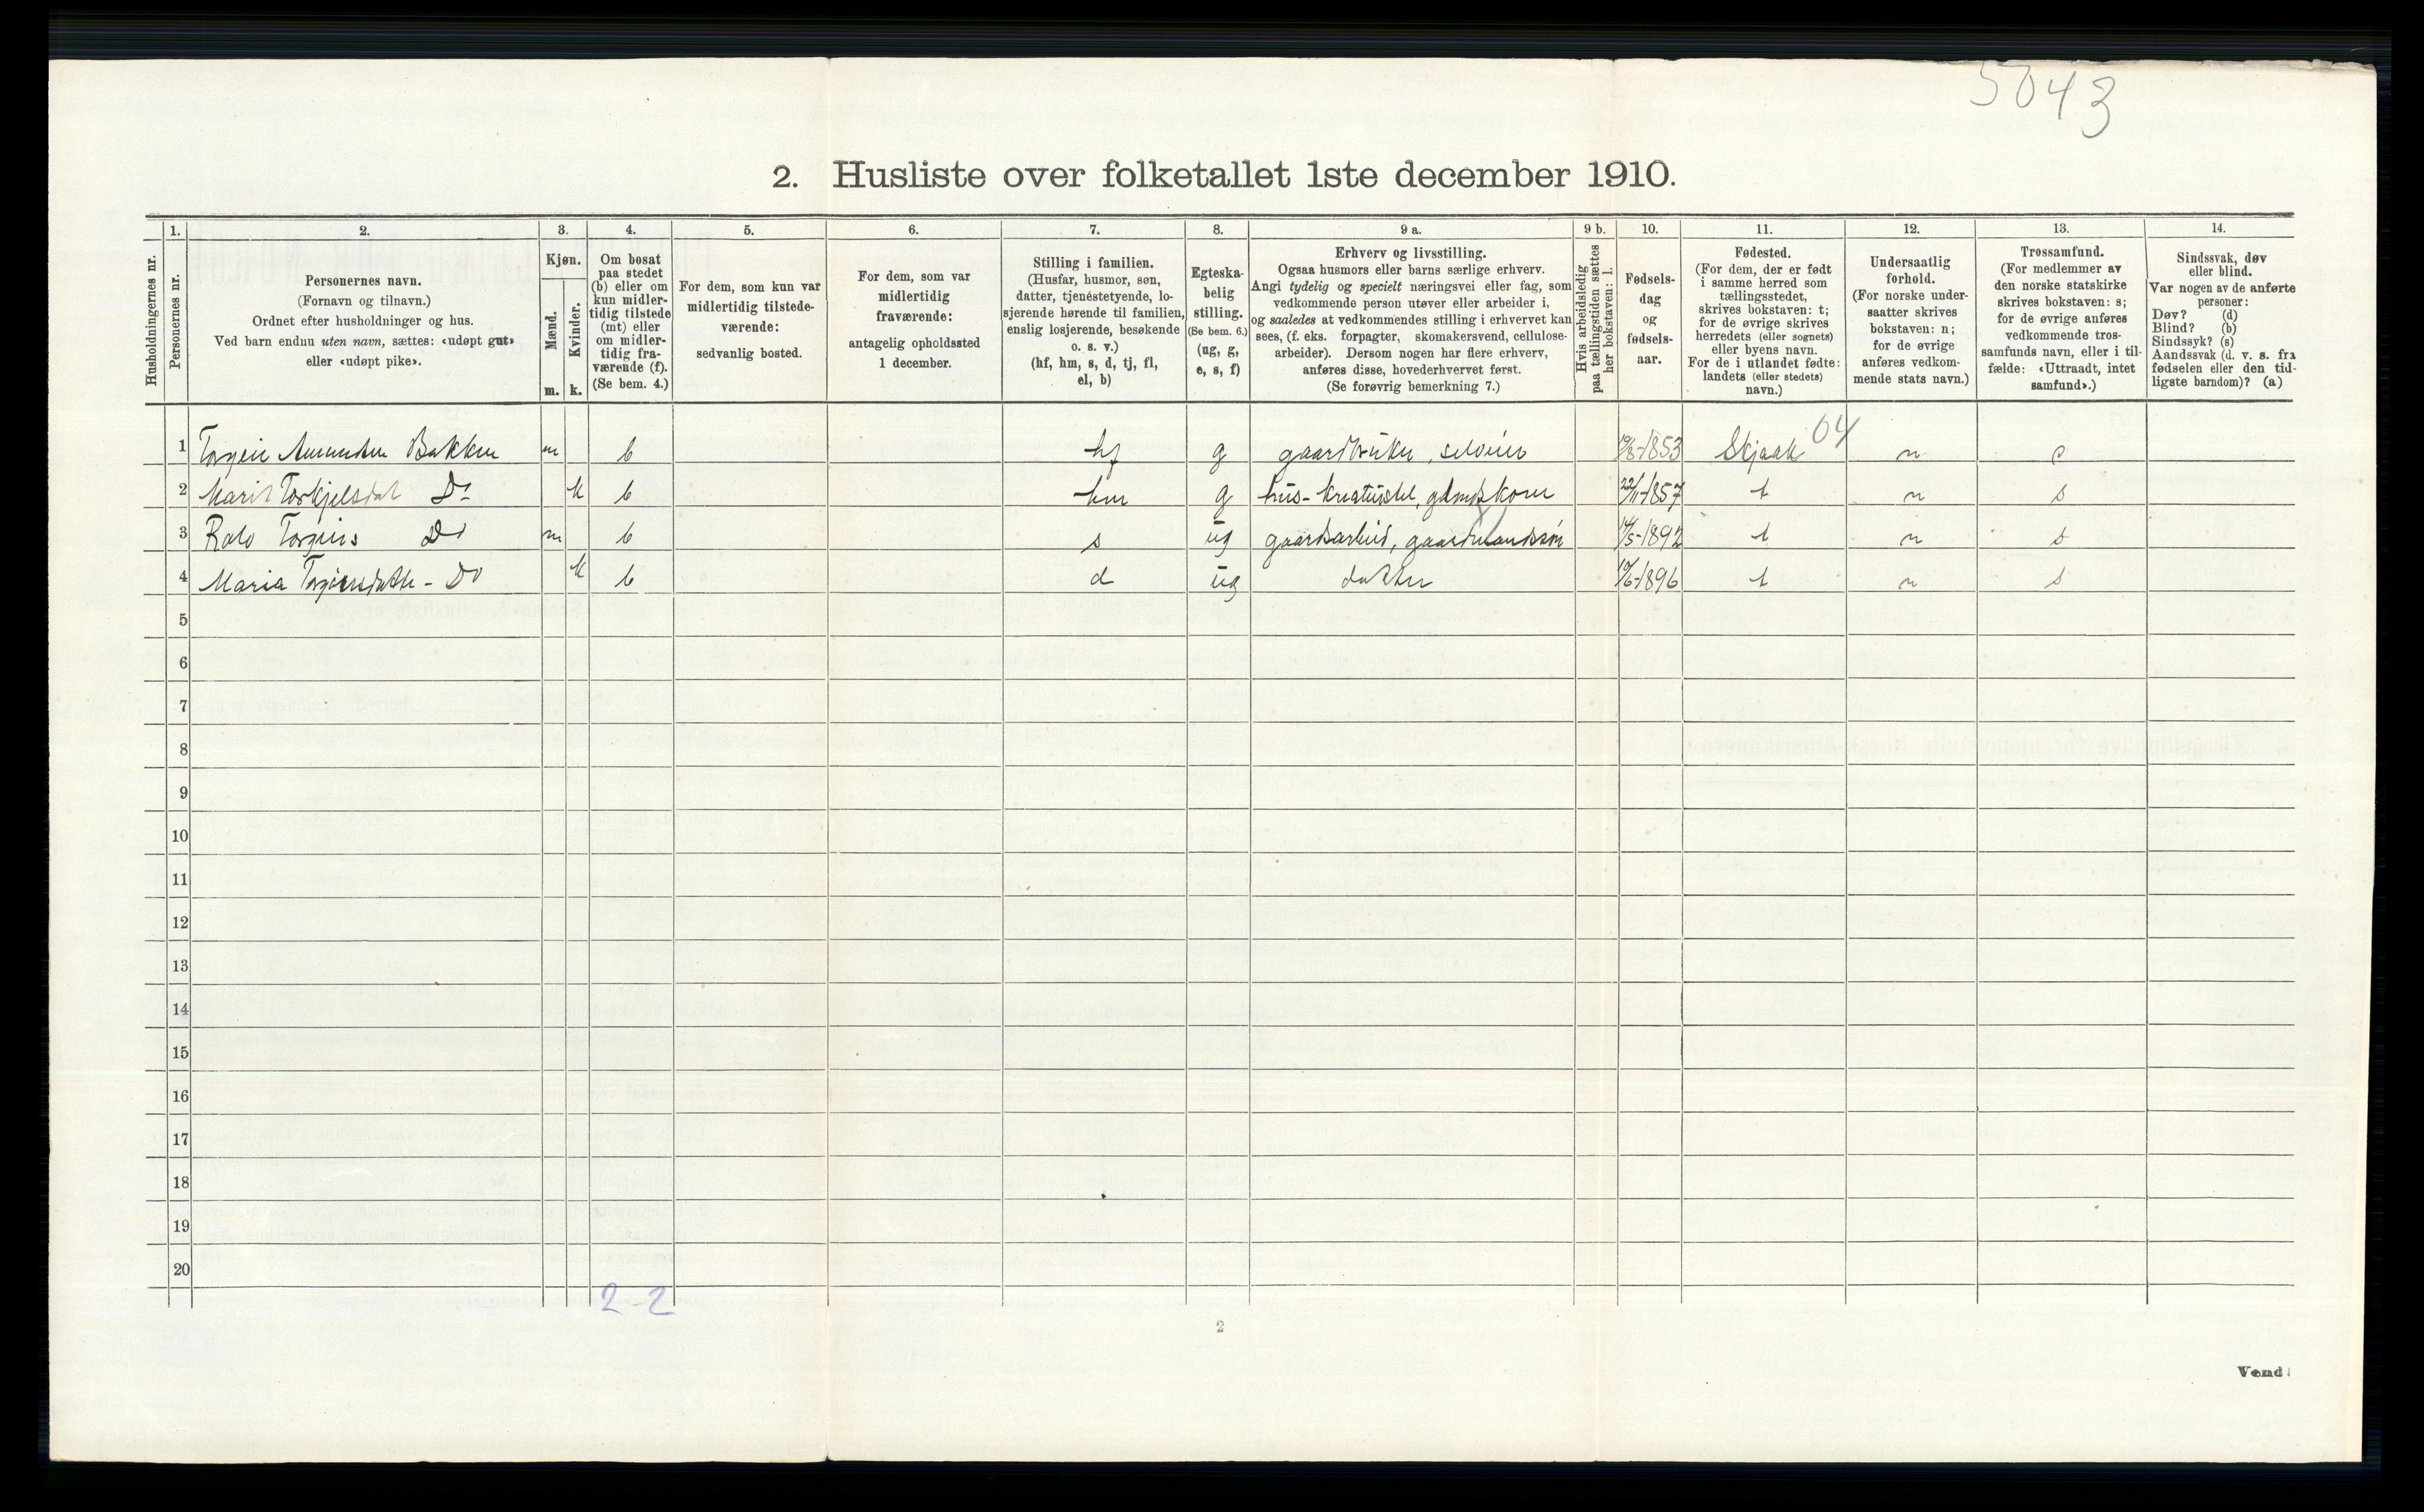 5043
2. Husliste over folketallet 1ste december 1910.
1. 2. 3. 4. 5. 6. 7. 8. 9 a. 9 b. 10. 11. 12. 13. 14.
Husholdningernes nr.
Personernes nr.
Personernes navn.
(Fornavn og tilnavn.)
Ordnet efter husholdninger og hus.
Ved barn endnu uten navn, sættes: «udøpt gut»
eller «udøpt pike».
Kjøn.
Mænd.
Kvinder.
m. k.
Om bosat
paa stedet
(b) eller om
kun midler-
tidig tilstede
(mt) eller
om midler-
tidig fra-
værende (f).
(Se bem. 4.)
For dem, som kun var
midlertidig tilstede-
værende:
sedvanlig bosted.
For dem, som var
midlertidig
fraværende:
antagelig opholdssted
1 december.
Stilling i familien.
(Husfar, husmor, søn,
datter, tjenestetyende, lo-
sjerende hørende til familien,
enslig losjerende, besøkende
o. s. v.)
(hf, hm, s, d, tj, fl,
el, b)
Egteska-
belig
stilling.
(Se bem. 6.)
(ug, g,
e, s, f)
Erhverv og livsstilling.
Ogsaa husmors eller barns særlige erhverv.
Angi tydelig og specielt næringsvei eller fag, som
vedkommende person utøver eller arbeider i,
og saaledes at vedkommendes stilling i erhvervet kan
sees, (f. eks. forpagter, skomakersvend, cellulose-
arbeider). Dersom nogen har flere erhverv,
anføres disse, hovederhvervet først.
(Se forøvrig bemerkning 7.)
Hvis arbeidsledig
paa tællingstiden sættes
her bokstaven: l.
Fødsels-
dag
og
fødsels-
aar.
Fødested.
(For dem, der er født
i samme herred som
tællingsstedet,
skrives bokstaven: t;
for de øvrige skrives
herredets (eller sognets)
eller byens navn.
For de i utlandet fødte:
landets (eller stedets)
navn.)
Undersaatlig
forhold.
(For norske under-
saatter skrives
bokstaven: n;
for de øvrige
anføres vedkom-
mende stats navn.)
Trossamfund.
(For medlemmer av
den norske statskirke
skrives bokstaven: s;
for de øvrige anføres
vedkommende tros-
samfunds navn, eller i til-
fælde: «Uttraadt, intet
samfund».)
Sindssvak, døv
eller blind.
Var nogen av de anførte
personer:
Døv? (d)
Blind? (b)
Sindssyk? (s)
Aandssvak (d. v. s. fra
fødselen eller den tid-
ligste barndom)? (a)
1 Torgeir Amundsen Bakken m b hf g gaardbruker, selveier 1853 Skjaak 04 n
2 Marit Torkjelsdat Do k b hm g 22/11-1857 t n s
3 Rolv Torgeirs Do m b s ug gaardsarbeid, gaardmandssøn 14/5-1892 t n s
4 Maria Torgeirsdatte - Do k b d ug datter 1896 t n s
5
6
7
8
9
10
11
12
13
14
15
16
17
18
19
20
2-2
2
Vend!